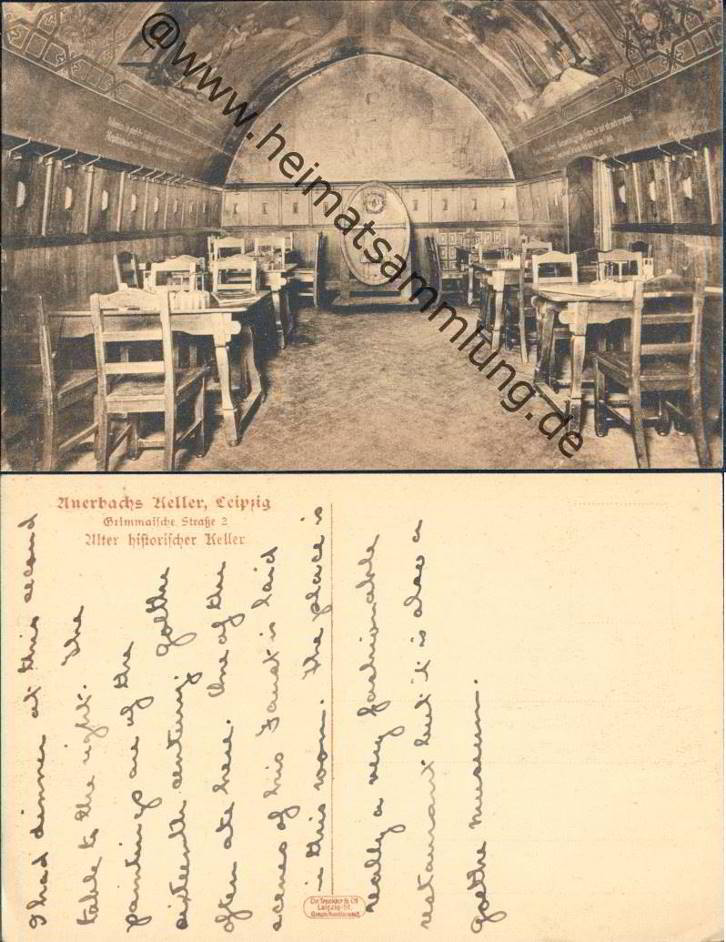 @www.heimatsammlung.de
Auerbachs Keller, Leipzig
Grimmaische Straße 2
Alter historischer Keller
I had dinner at this second
table to the right. The
paintings are of the
sixteenth century. Goethe
often ate here. One of the
scenes of his Faust is laid
in this room. The place is
really a very fashionable
restaurant but it is also a
Goethe museum.